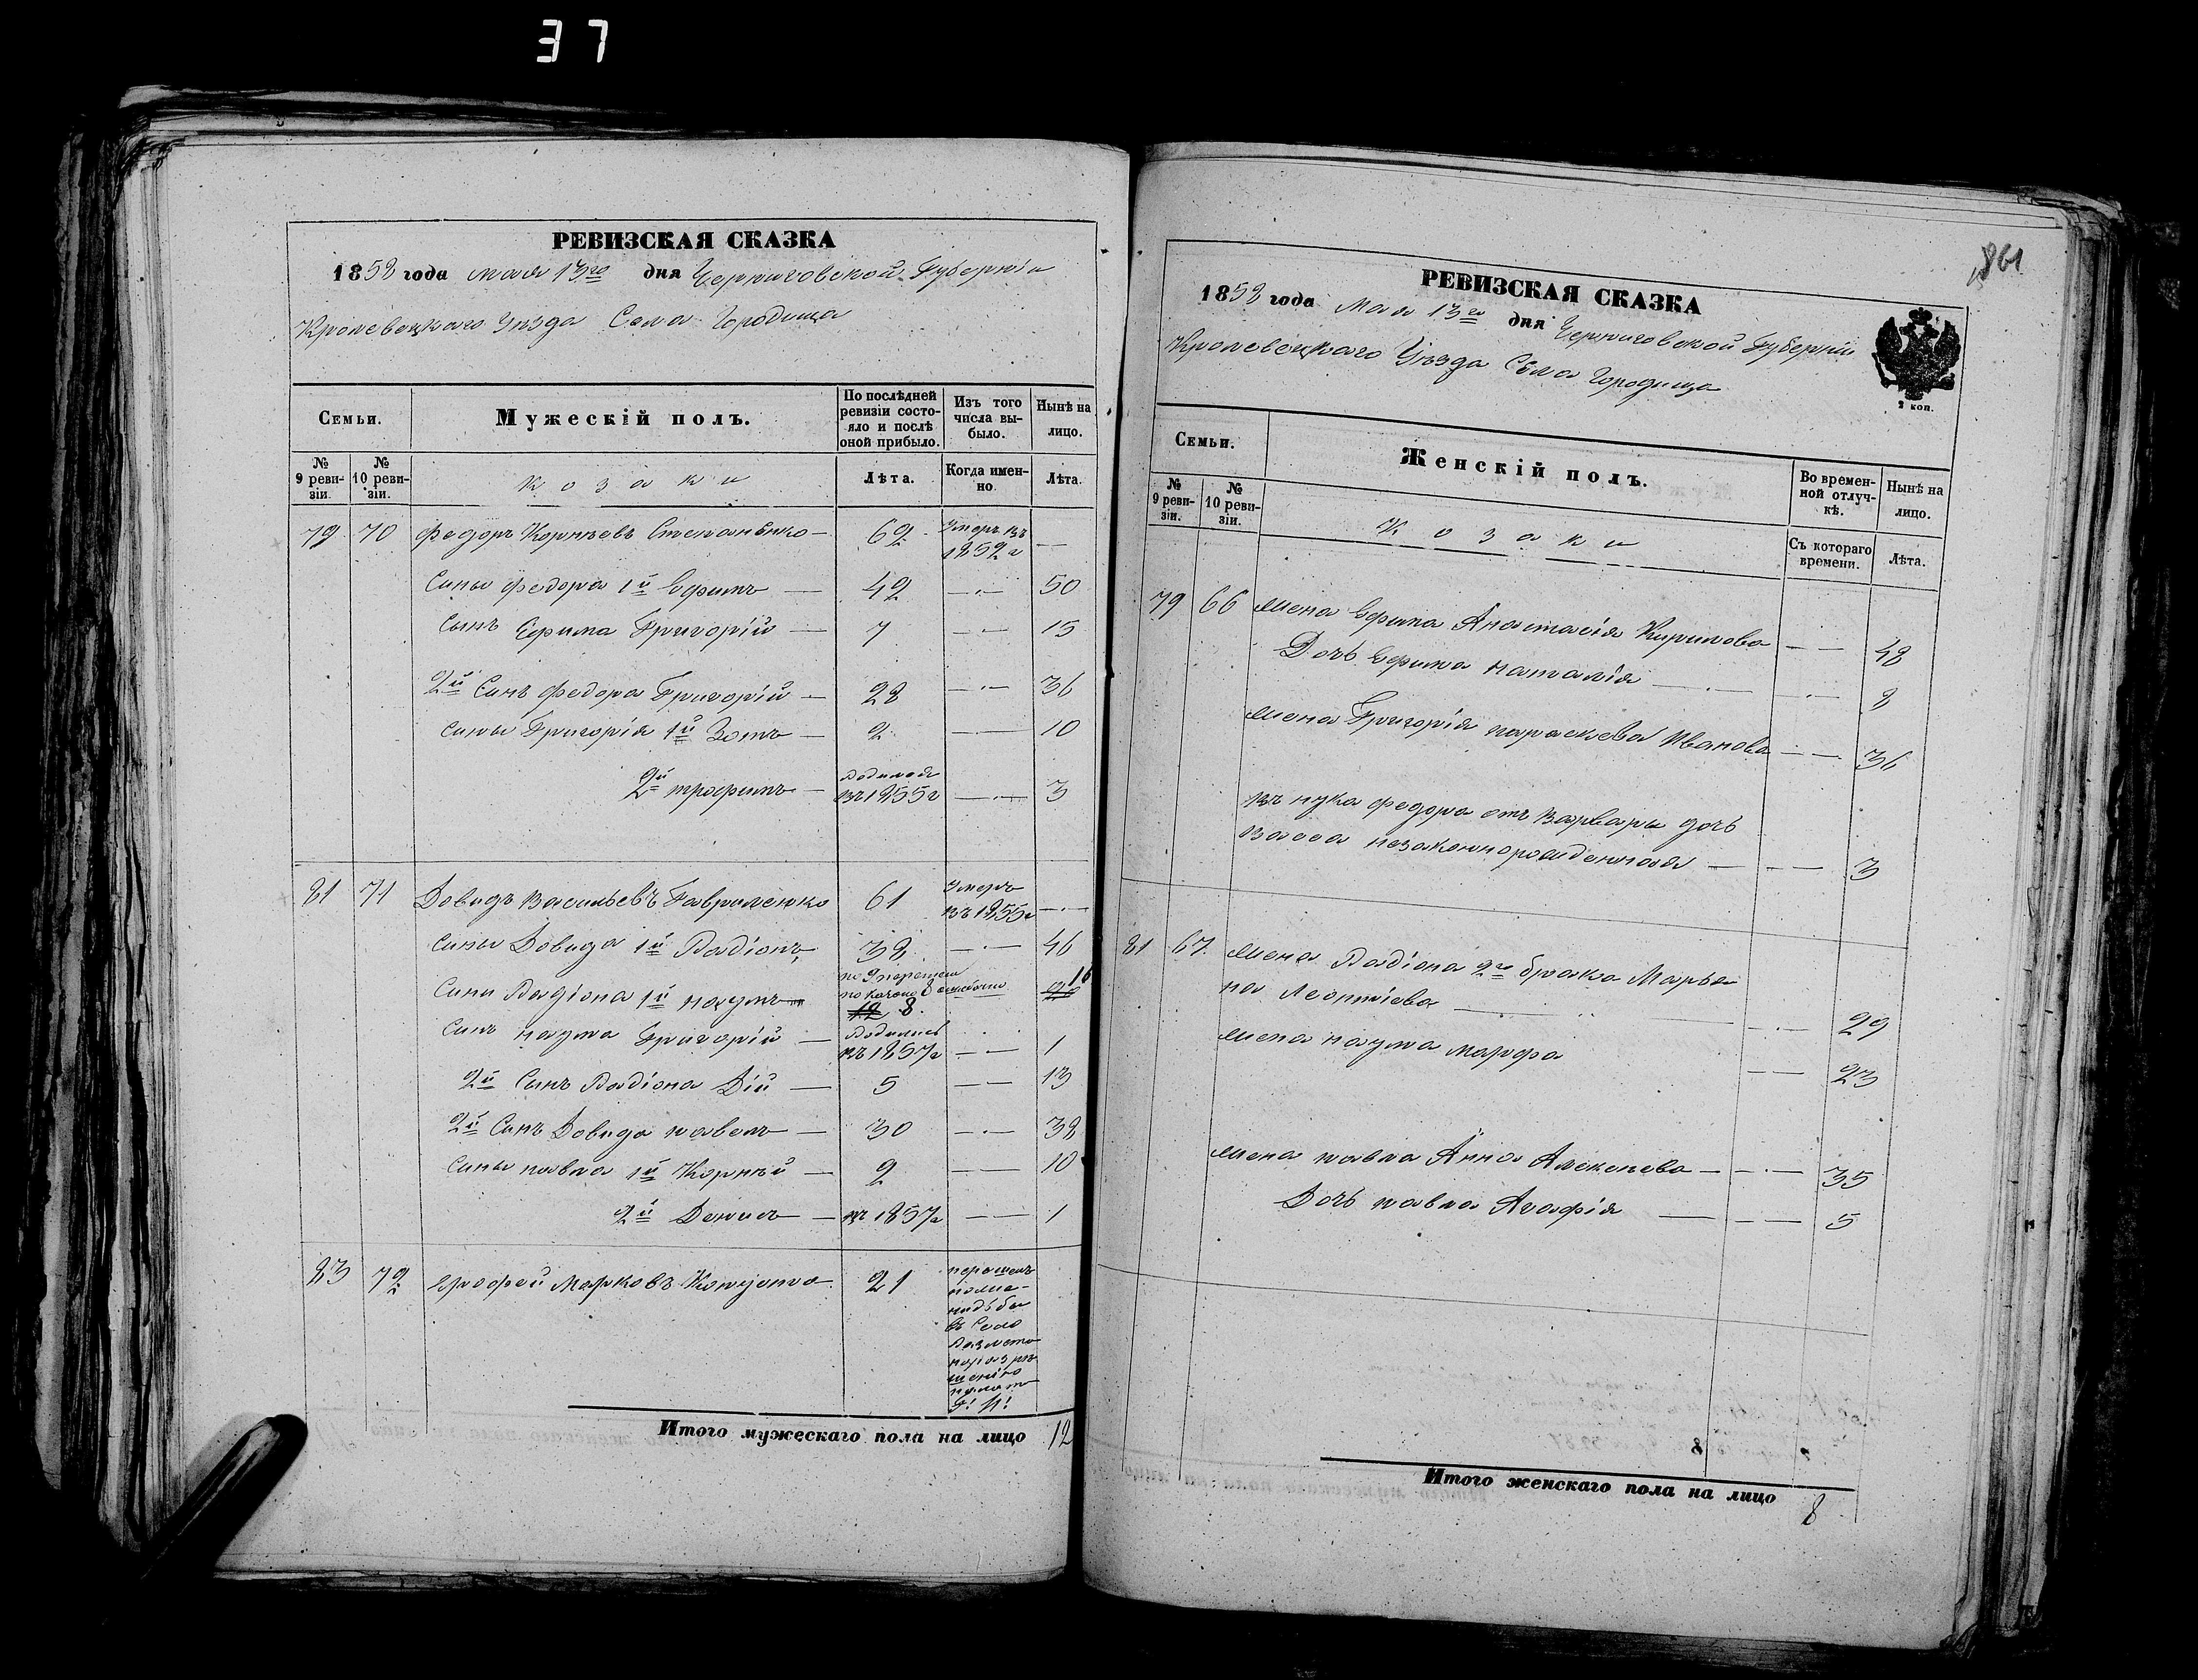 37
РЕВИЗСКАЯ СКАЗКА
1858 года мая 13го дня Черниговской Губернiи
Кролевецкаго Уѣзда Села Городища
Семьи.
Мужескій полъ.
По послѣдней ревизіи состояло и послѣ оной прибыло.
Изъ того числа выбыло.
Нынѣ на лицо.
№ 9 ревизіи.
№ 10 ревизіи.
Козаки
Лѣта.
Когда именно
Лѣта.
79 70 Федоръ Корнѣевъ Степаненко — 62 Умеръ въ 1852 г —
Сины Федора 1й Ефимъ — 42 — 50
Сынъ Ефима Григорій — 7 — 15
2й Синъ Федора Григорій — 28 — 36
Сины Григорія 1й Зотъ — 2 — 10
2й трофимъ — родился въ 1855 г — 3
81 71 Довидъ Васильевъ Гавриленко 61 Умеръ въ 1855 г —
Сины Довида 1й Радіонъ, 38 — 46
Сини Радіона 1й наумъ 12 8. 16
Синъ наума Григорій — Родился въ 1857 г — 1
2й Сынъ Радіона Дій — 5 — 13
2й Синъ Довида павелъ — 30 — 38
Сины павла 1й Корнѣй — 2 — 10
2й Денисъ — въ 1857 г — 1
83 72 Ерофей Марковъ Капуста 21 перешелъ
въ Село
Итого мужескаго пола на лицо 12
861
РЕВИЗСКАЯ СКАЗКА
1858 года Мая 13го дня Черниговской Губерніи
Кролевецкаго Уѣзда Села Городища
2 коп.
Семьи.
Женскій полъ.
Во временной отлучкѣ.
Нынѣ на лицо.
№ 9 ревизіи.
№ 10 ревизіи.
Козаки
Съ котораго времени.
Лѣта.
79 66 жена Ефима Анастасія Кирилова — 48
Дочь Ефима наталія — 8
жена Григорія параскева Иванова — 36
въ нука Федора отъ варвары дочь
васса незаконнорожденная — 3
81 67. жена Радіона 2го брака Марья
на Леонтіева — 29
жена наума марфа — 23
жена павла Анна Алексѣева — 35
Дочь павла Агафія — 5
8
Итого женскаго пола на лицо 8